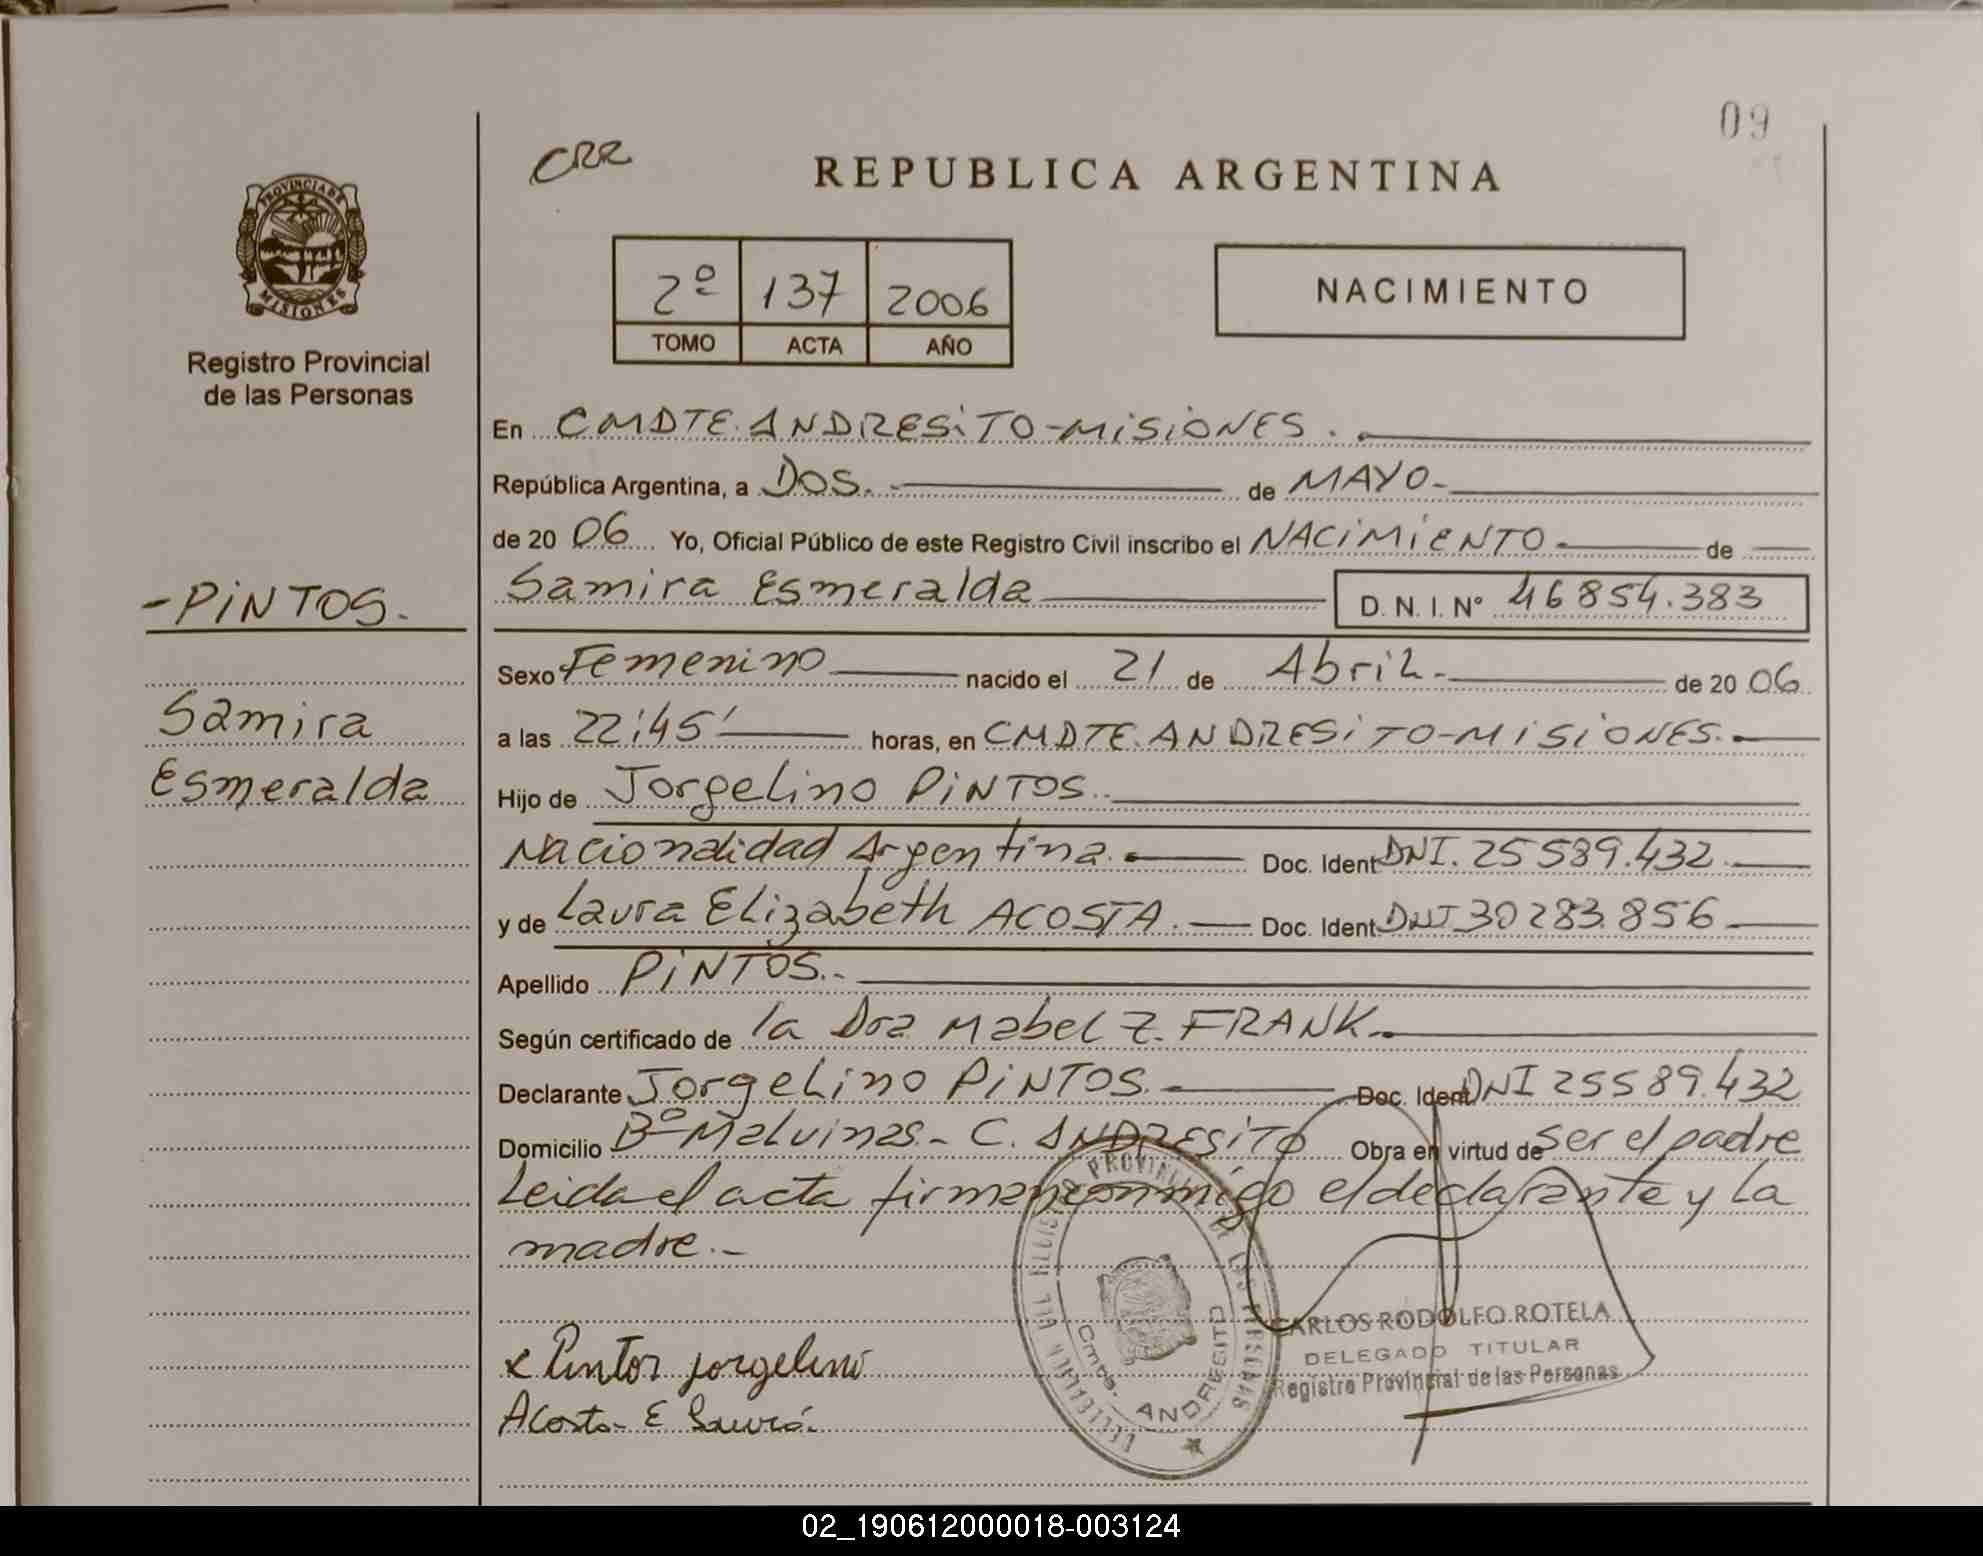 09
CRR
REPUBLICA ARGENTINA
PROVINCIA DE
MISIONES
Registro Provincial
de las Personas
2º 137 2006
TOMO ACTA AÑO
NACIMIENTO
En CMDTE. ANDRESITO-MISIONES.
República Argentina, a DOS. de MAYO-
de 20 06 Yo, Oficial Público de este Registro Civil inscribo el NACIMIENTO de
Samira Esmeralda D. N. I. Nº 46854.383
-PINTOS.
Samira
Esmeralda
Sexo Femenino nacido el 21 de Abril- de 20 06
a las 22:45' horas, en CMDTE. ANDRESITO-MISIONES.
Hijo de Jorgelino PINTOS.
Nacionalidad Argentina. Doc. Ident DNI. 25589.432
y de Laura Elizabeth ACOSTA. Doc. Ident DNI 30283.856
Apellido PINTOS.-
Según certificado de la Dra Mabel Z. FRANK.
Declarante Jorgelino PINTOS. Doc. Ident DNI 25589.432
Domicilio Bº Malvinas.- C. ANDRESITO Obra en virtud de ser el padre
Leida el acta firman conmigo el declarante y la
madre.-
x Pintos jorgelino
Acosta E Laura.
PROVINCIAL DE LAS PERSONAS
Cmte. ANDRESITO
CARLOS RODOLFO ROTELA
DELEGADO TITULAR
Registro Provincial de las Personas
02_190612000018-003124